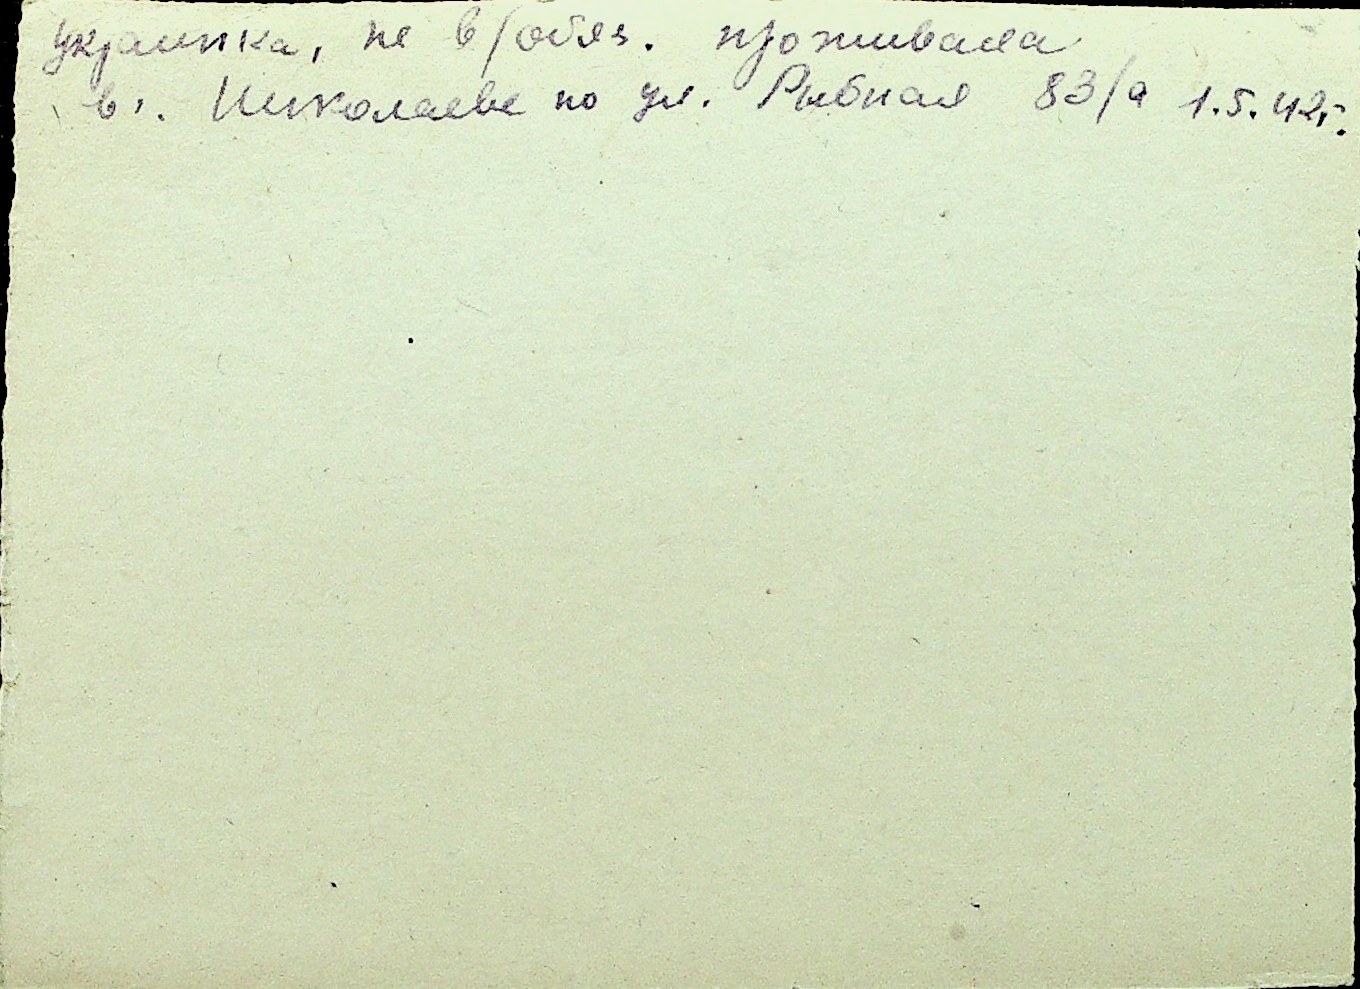 украинка, не в/обяз. проживала
в г. Николаеве по ул. Рыбная 83/а 1.5.42г.